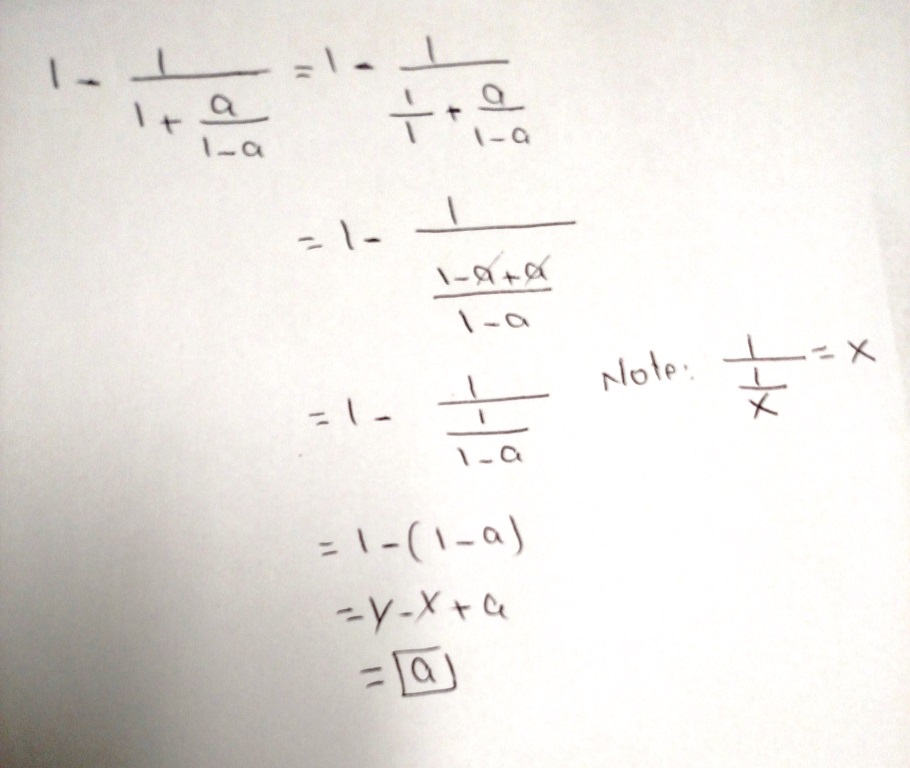 1 - 1/(1 + a/(1-a)) = 1 - 1/(1/1 + a/(1-a))
= 1 - 1/((1-a+a)/(1-a))
= 1 - 1/(1/(1-a)) Note: 1/(1/x) = x
= 1-(1-a)
= 1-1+a
= a